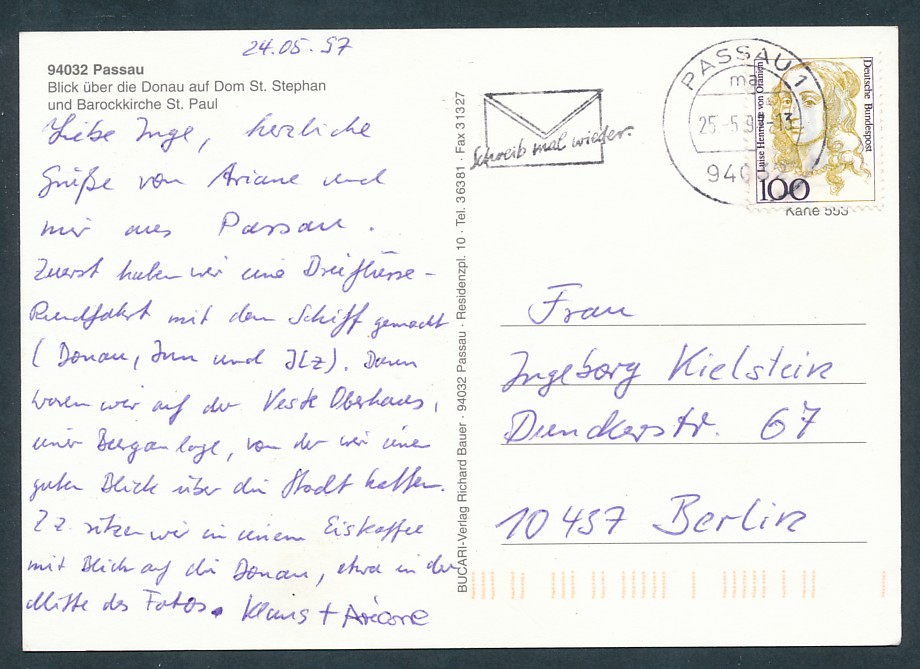 24.05.97
94032 Passau
Blick über die Donau auf Dom St. Stephan
und Barockkirche St. Paul
Liebe Inge, herzliche
Grüße von Ariane und
mir aus Passau.
Zuerst haben wir eine Dreiflüsse-
Rundfahrt mit dem Schiff gemacht
(Donau, Inn und Ilz). Dann
waren wir auf der Veste Oberhaus,
einer Burganlage, von der wir einen
guten Blick über die Stadt hatten.
Zz. sitzen wir in einem Eiskaffee
mit Blick auf die Donau, etwa in der
Mitte des Fotos. Klaus + Ariane
BUCARI-Verlag Richard Bauer · 94032 Passau · Residenzpl. 10 · Tel. 36381 · Fax 31327
Schreib mal wieder.
PASSAU 1
ma
25.-5.9
-13
940
Luise Henriette von Oranien
Deutsche Bundespost
100
Karte 553
Frau
Ingeborg Kielstein
Dunckerstr. 67
10437 Berlin